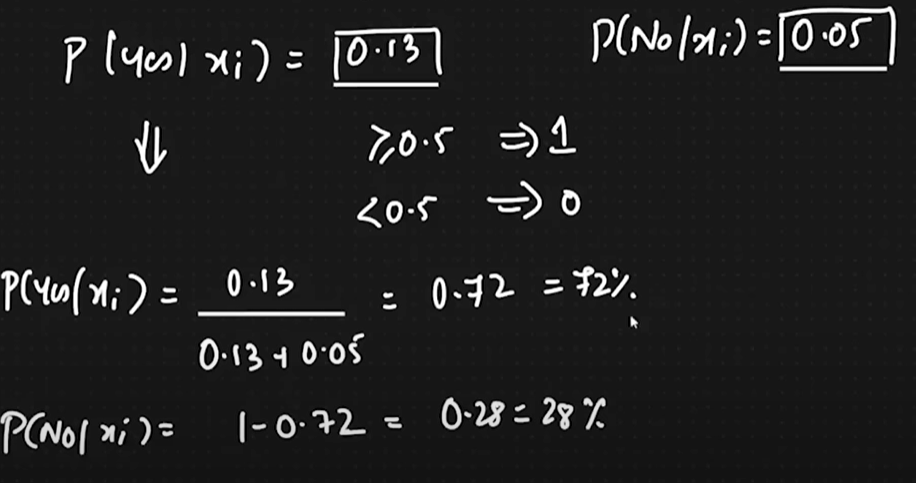 P(Yes|xi) = 0.13 P(No|xi) = 0.05
⇓ ≥0.5 ⇒ 1
<0.5 ⇒ 0
P(Yes|xi) = 0.13 / 0.13 + 0.05 = 0.72 = 72%.
P(No|xi) = 1-0.72 = 0.28 = 28%